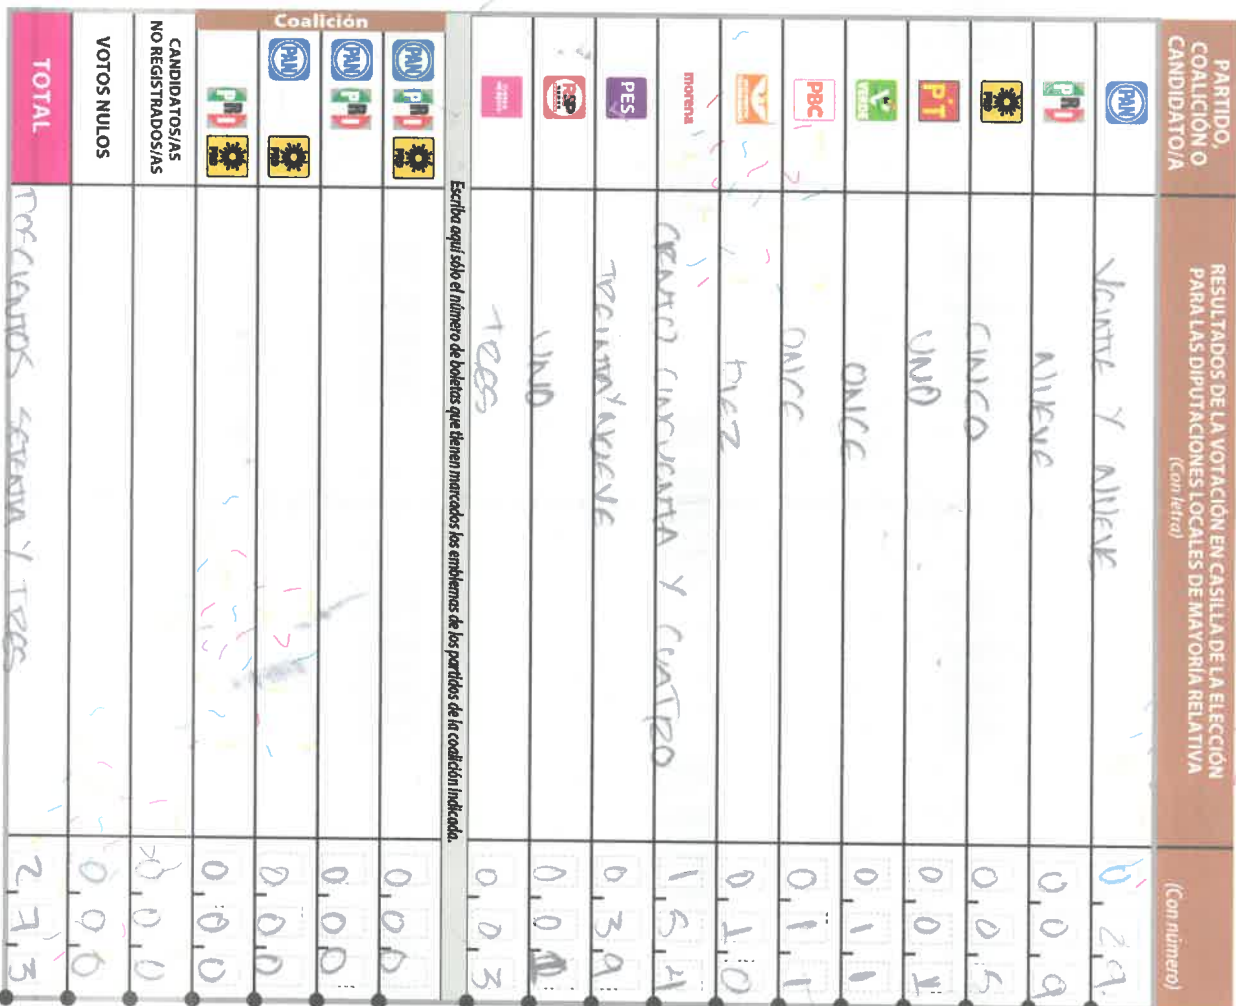 PARTIDO, COALICIÓN O CANDIDATO/A
RESULTADOS DE LA VOTACIÓN EN CASILLA DE LA ELECCIÓN PARA LAS DIPUTACIONES LOCALES DE MAYORÍA RELATIVA
(Con letra)
(Con número)
PAN VEINTE Y NUEVE 0 2 9
PRI NUEVE 0 0 9
PRD CINCO 0 0 5
PT UNO 0 0 1
VERDE ONCE 0 1 1
PBC ONCE 0 1 1
DIEZ 0 1 0
morena CIENTO CINCUENTA Y CUATRO 1 5 4
PES TREINTA Y NUEVE 0 3 9
RSP UNO 0 0 1
TRES 0 0 3
Escriba aquí sólo el número de boletas que tienen marcados los emblemas de los partidos de la coalición indicada.
Coalición
PAN PRI PRD 0 0 0
PAN PRI 0 0 0
PAN PRD 0 0 0
PRI PRD 0 0 0
CANDIDATOS/AS NO REGISTRADOS/AS 0 0 0
VOTOS NULOS 0 0 0
TOTAL DOSCIENTOS SETENTA Y TRES 2 7 3